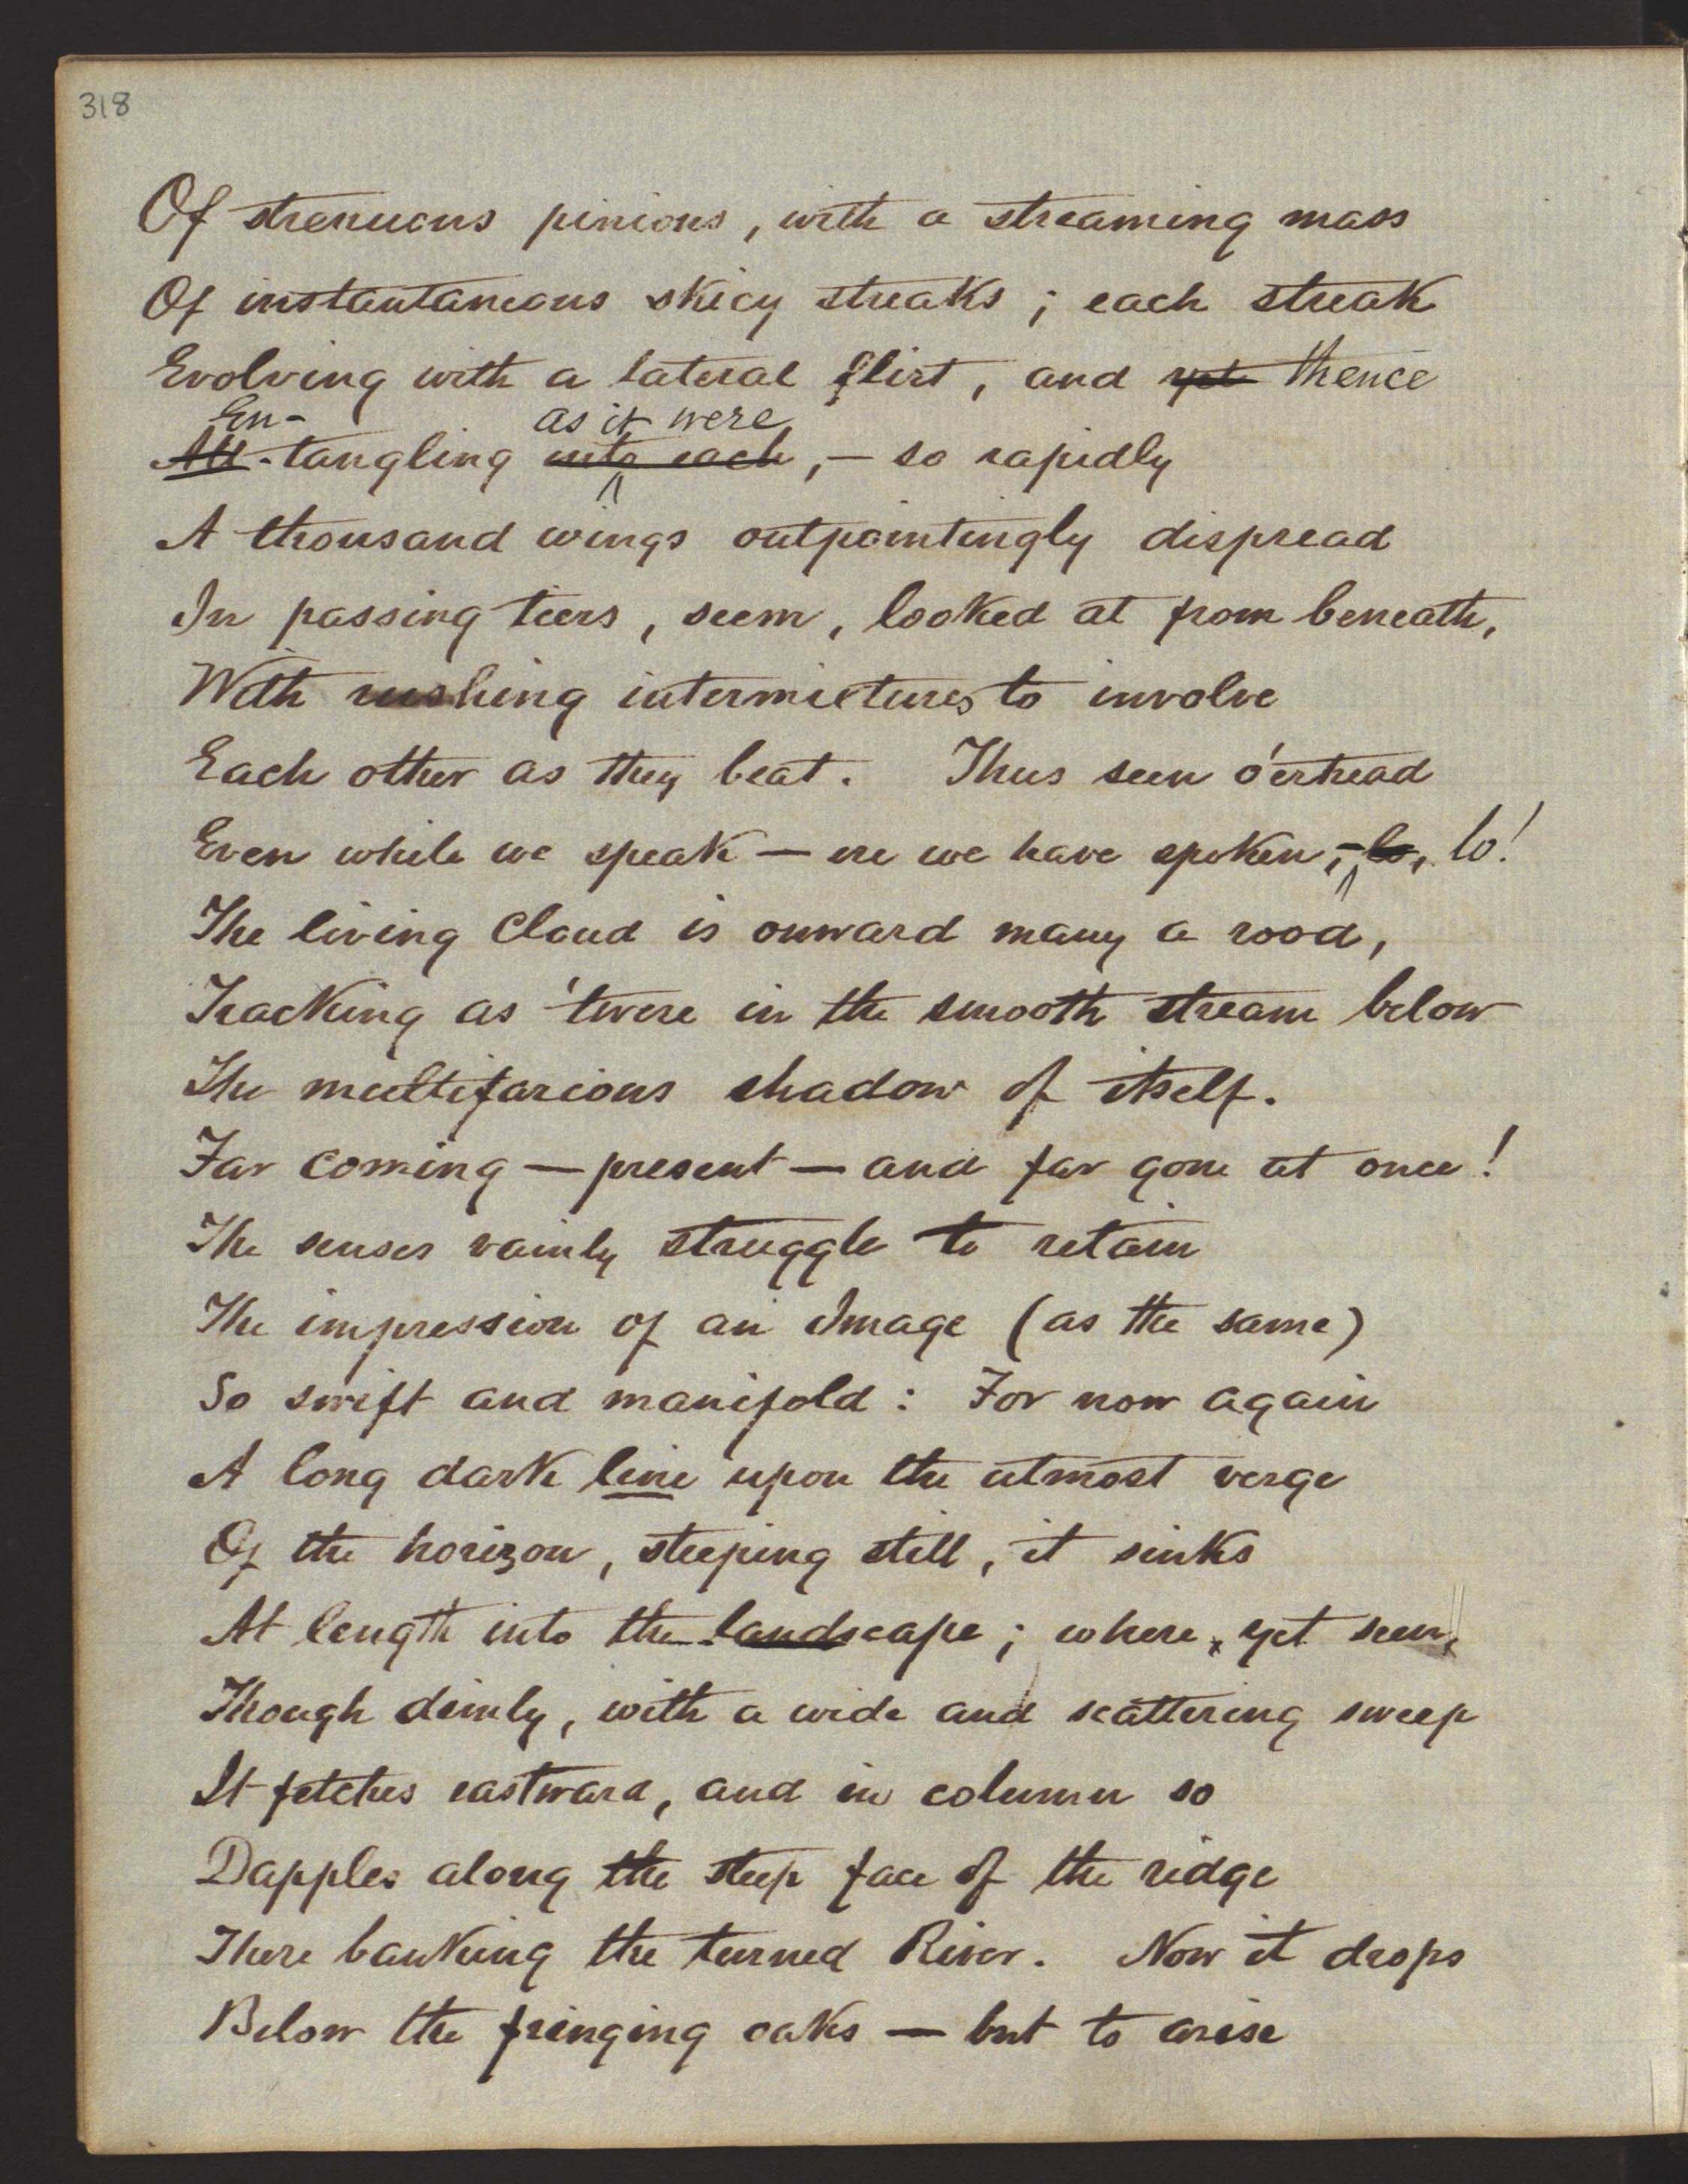 318
Of strenuous pinions, with a streaming mass
Of instantaneous skiey streaks; each streak
Evolving with a lateral flirt, and yet thence
En- as it were
All-tangling into each, — so rapidly
A thousand wings outpointingly dispread
In passing tiers, seem, looked at from beneath,
With rushing intermixtures to involve
Each other as they beat. Thus seen o'erhead
Even while we speak — ere we have spoken, – lo, lo!
The living Cloud is onward many a rood,
Tracking as 'twere in the smooth stream below
The multifarious shadow of itself.
Far coming — present — and far gone at once!
The senses vainly struggle to retain
The impression of an Image (as the same)
So swift and manifold: For now again
A long dark line upon the utmost verge
Of the horizon, steeping still, it sinks
At length into the landscape; where, yet seen,
Though dimly, with a wide and scattering sweep
It fetches eastward, and in column so
Dapples along the steep face of the ridge
There banking the turned River. Now it drops
Below the fringing oaks — but to arise